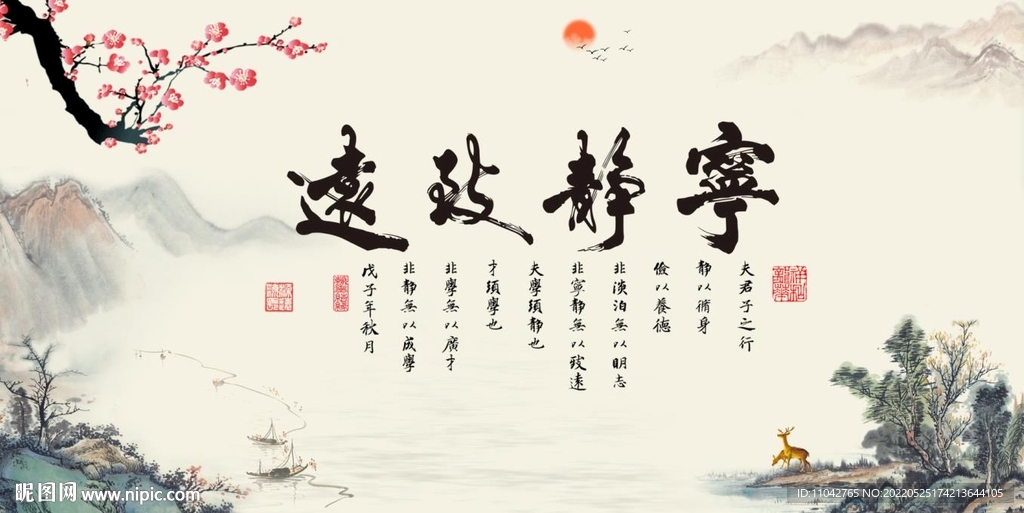 寧靜致遠
夫君子之行
靜以脩身
儉以養德
非淡泊無以明志
非寧靜無以致遠
夫學須靜也
才須學也
非學無以廣才
非靜無以成學
戊子年秋月
昵图网 www.nipic.com
ID:11042765 NO:20220525174213644105